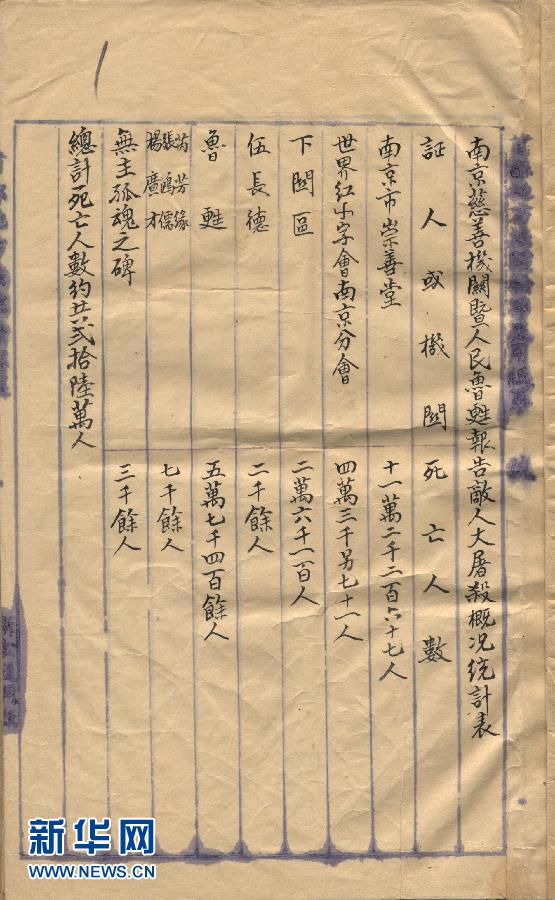 南京慈善機關暨人民魯甦報告敵人大屠殺概况统計表
証人或機関 死亡人數
南京市崇善堂 十一萬二千二百六十七人
世界紅卍字會南京分會 四萬三千另七十一人
下関區 二萬六千一百人
伍長德 二千餘人
魯甦 五萬七千四百餘人
芮芳缘
張鴻儒
楊廣才 七千餘人
無主孤魂之碑 三千餘人
總計死亡人數約廿弍拾陸萬人
新华网
WWW.NEWS.CN